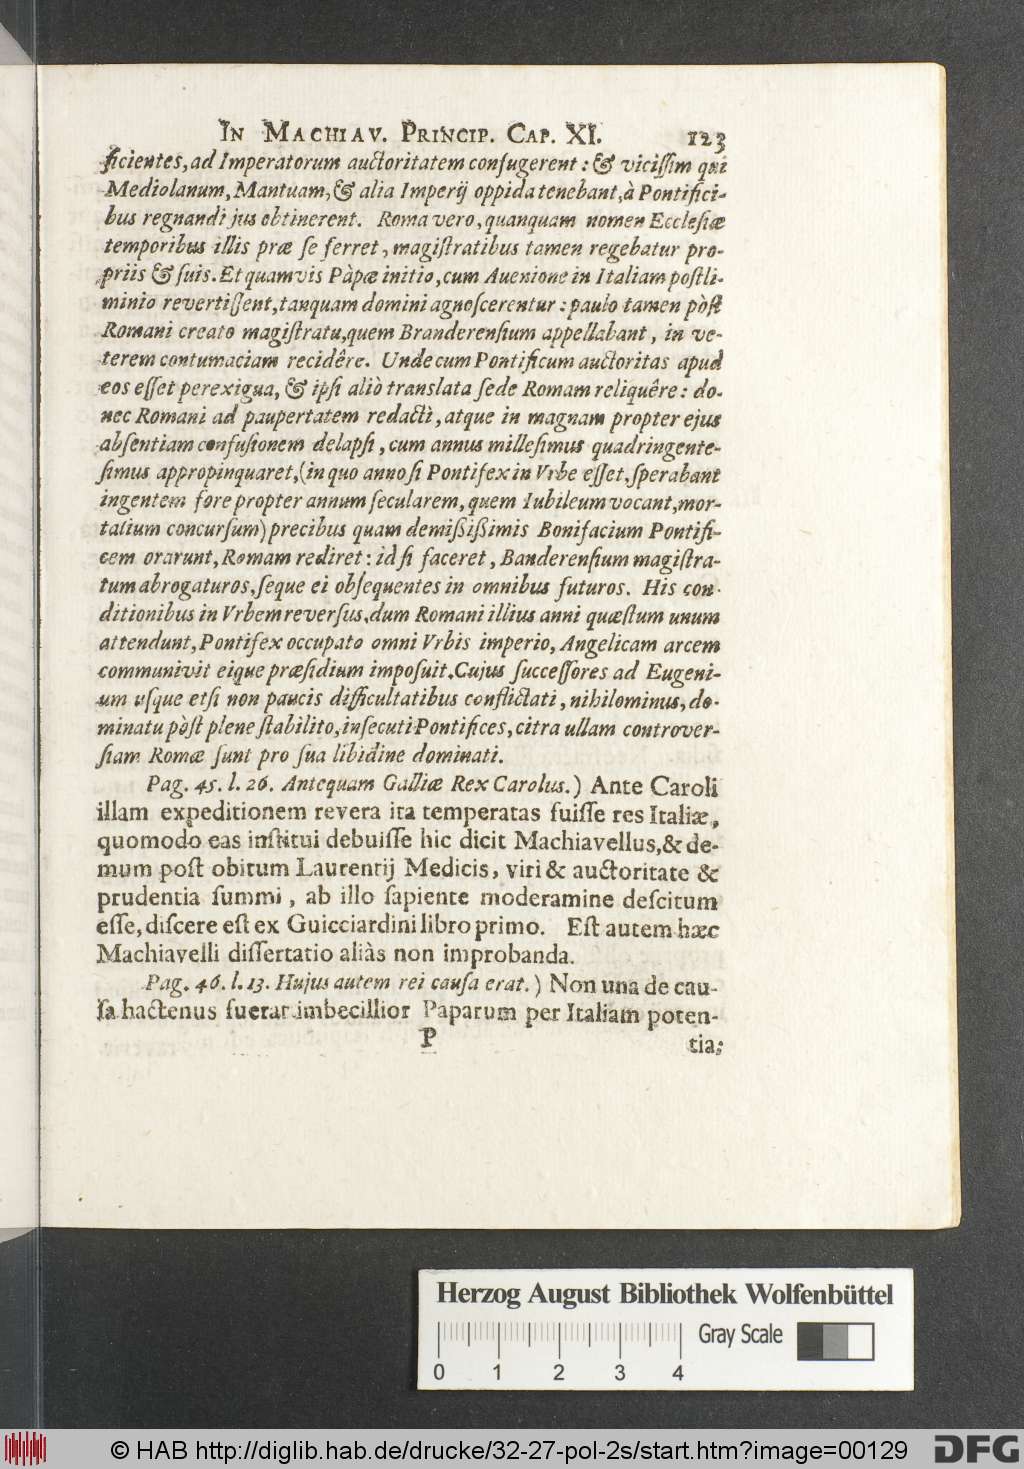 In Machiav. Princip. Cap. XI. 123
ficientes, ad Imperatorum auctoritatem confugerent: & viciſſim qui
Mediolanum, Mantuam, & alia Imperij oppida tenebant, à Pontifici-
bus regnandi jus obtinerent. Roma vero, quanquam nomen Eccleſiæ
temporibus illis præ ſe ferret, magiſtratibus tamen regebatur pro-
priis & ſuis. Et quamvis Pàpæ initio, cum Auenione in Italiam poſtli-
minio revertiſſent, tanquam domini agnoſcerentur: paulo tamen pòſt
Romani creato magiſtratu, quem Branderenſium appellabant, in ve-
terem contumaciam recidêre. Unde cum Pontificum auctoritas apud
eos eſſet perexigua, & ipſi aliò translata ſede Romam reliquêre: do-
nec Romani ad paupertatem redacti, atque in magnam propter ejus
abſentiam confuſionem delapſi, cum annus milleſimus quadringente-
ſimus appropinquaret, (in quo anno ſi Pontifex in Vrbe eſſet, ſperabant
ingentem fore propter annum ſecularem, quem Iubileum vocant, mor-
talium concurſum) precibus quam demiſsiſsimis Bonifacium Pontifi-
cem orarunt, Romam rediret: id ſi faceret, Banderenſium magiſtra-
tum abrogaturos, ſeque ei obſequentes in omnibus futuros. His con-
ditionibus in Vrbem reverſus, dum Romani illius anni quæſtum unum
attendunt, Pontifex occupato omni Vrbis imperio, Angelicam arcem
communivit eique præſidium impoſuit. Cujus ſucceſſores ad Eugeni-
um uſque etſi non paucis difficultatibus conflictati, nihilominus, do-
minatu pòſt plene ſtabilito, inſecuti Pontifices, citra ullam controver-
ſiam Romæ ſunt pro ſua libidine dominati.
Pag. 45. l. 26. Antequam Galliæ Rex Carolus.) Ante Caroli
illam expeditionem revera ita temperatas fuiſſe res Italiæ,
quomodo eas inſtitui debuiſſe hic dicit Machiavellus, & de-
mum poſt obitum Laurentij Medicis, viri & auctoritate &
prudentia ſummi, ab illo ſapiente moderamine deſcitum
eſſe, diſcere eſt ex Guicciardini libro primo. Eſt autem hæc
Machiavelli diſſertatio aliàs non improbanda.
Pag. 46. l. 13. Hujus autem rei cauſa erat.) Non una de cau-
ſa hactenus fuerat imbecillior Paparum per Italiam poten-
P tia;
Herzog August Bibliothek Wolfenbüttel
Gray Scale
0 1 2 3 4
© HAB http://diglib.hab.de/drucke/32-27-pol-2s/start.htm?image=00129 DFG